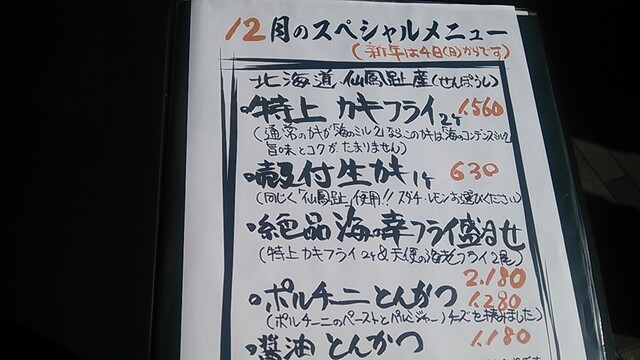 12月のスペシャルメニュー
(新年は4日(日)からです)
北海道 仙鳳趾産(せんぽうし)
・特上 カキフライ2ケ 1.560
(通常のカキが「海のミルク」ならこのカキは「海のコンデンスミルク」
旨味とコクがたまりません)
・殻付生カキ1ケ 630
(同じく「仙鳳趾」使用!! スダチ・レモンお選びください)
・絶品 海の幸フライ盛合せ
(特上カキフライ2ケ&天使の海老フライ2尾)
2.180
・ポルチーニとんかつ 1.280
(ポルチーニのペーストとパルジャーノチーズを挟みました)
・醤油とんかつ 1.180